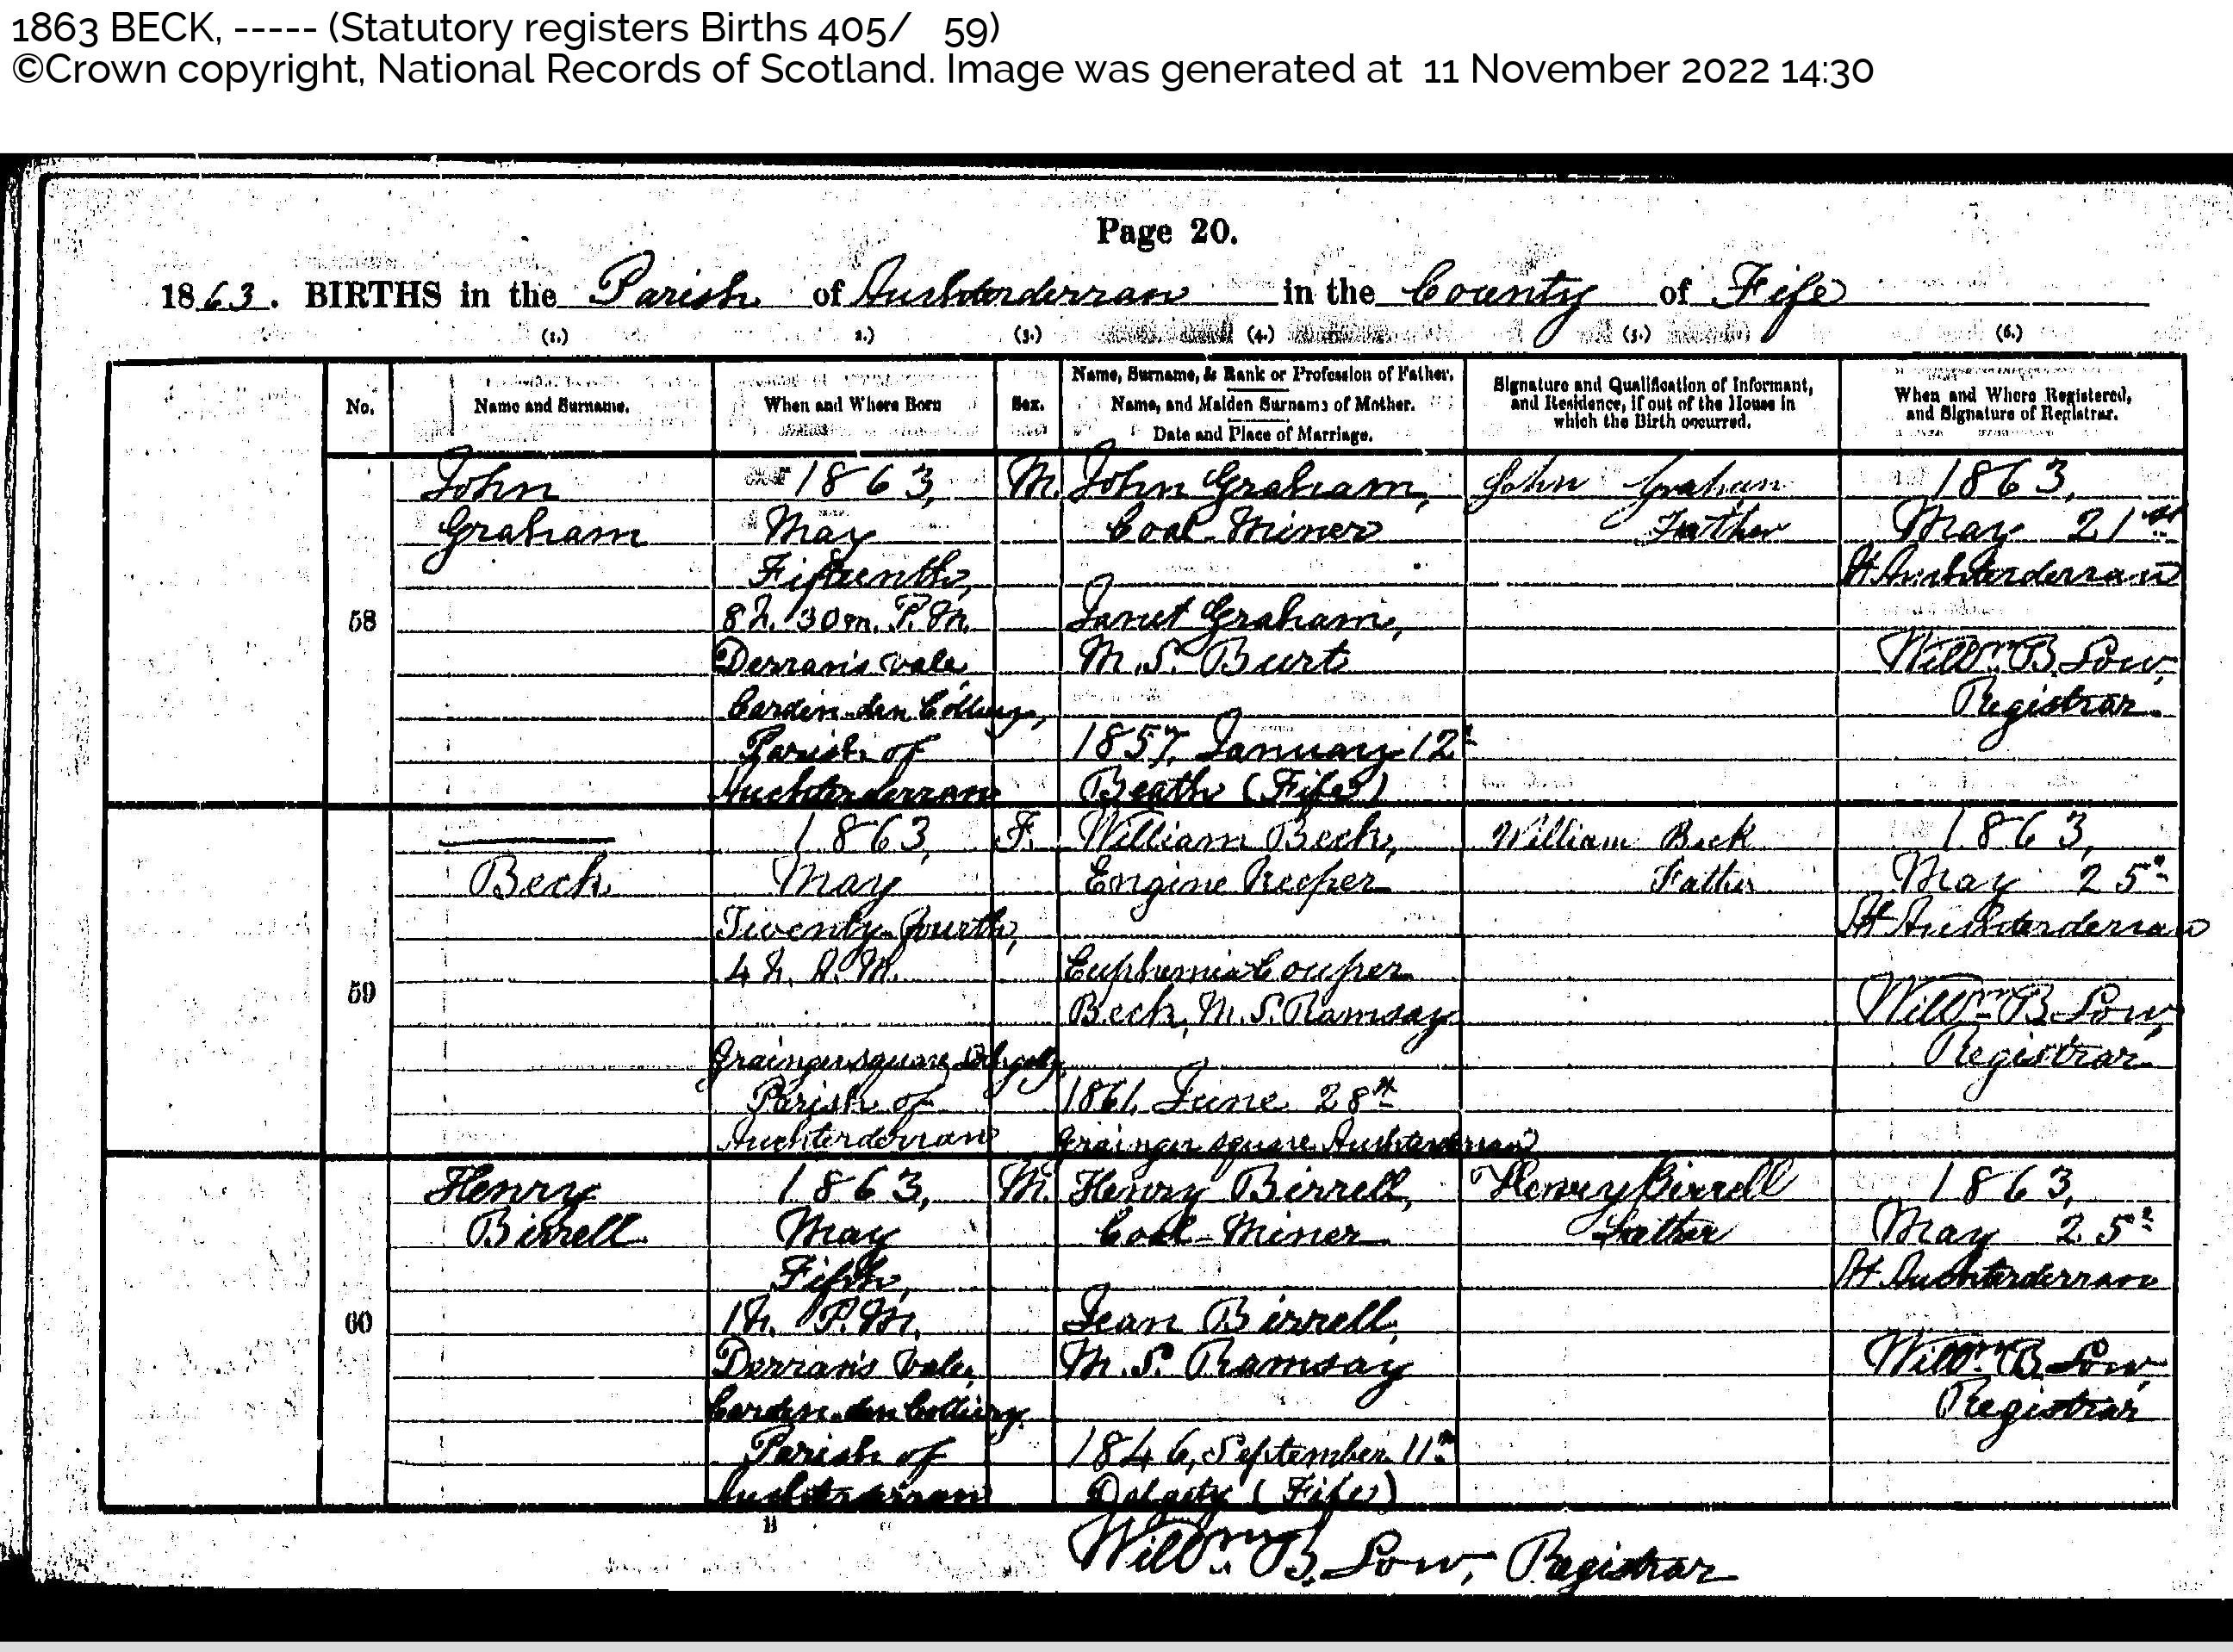 1863 BECK, ----- (Statutory registers Births 405/ 59)
©Crown copyright, National Records of Scotland. Image was generated at 11 November 2022 14:30
Page 20.
1863. BIRTHS in the Parish of Auchterderran in the County of Fife
(1.) 2.) (3.) (4.) (5.) (6.)
No.
Name and Surname.
When and Where Born
Sex.
Name, Surname, & Rank or Profession of Father.
Name, and Maiden Surname of Mother.
Date and Place of Marriage.
Signature and Qualification of Informant,
and Residence, if out of the House in
which the Birth occurred.
When and Where Registered,
and Signature of Registrar.
58
John
Graham
1863,
May
Fifteenth,
8h. 30m. P.M.
Derran's Vale,
Carden-den Colliery,
Parish of
Auchterderran
M.
John Graham,
Coal-Miner
Janet Graham,
M.S. Burt
1857, January 12th
Beath (Fife)
John Graham
Father
1863,
May 21st
At Auchterderran
Willm. B. Low,
Registrar.
59
Beck
1863,
May
Twenty-fourth,
4h. A.M.
Grainger square, Lochgelly,
Parish of
Auchterderran
F.
William Beck,
Engine Keeper
Euphemia Couper
Beck, M.S. Ramsay
1861, June 28th
Grainger square Auchterderran
William Beck
Father
1863,
May 25th
At Auchterderran
Willm. B. Low,
Registrar
60
Henry
Birrell
1863,
May
Fifth,
1h. P.M.
Derran's Vale,
Carden-den Colliery.
Parish of
Auchterderran
M.
Henry Birrell,
Coal-Miner
Jean Birrell,
M.S. Ramsay
1846, September 11th
Dalgety (Fife)
Henry Birrell
Father
1863,
May 25th
At Auchterderran
Willm. B. Low,
Registrar
Willm. B. Low, Registrar